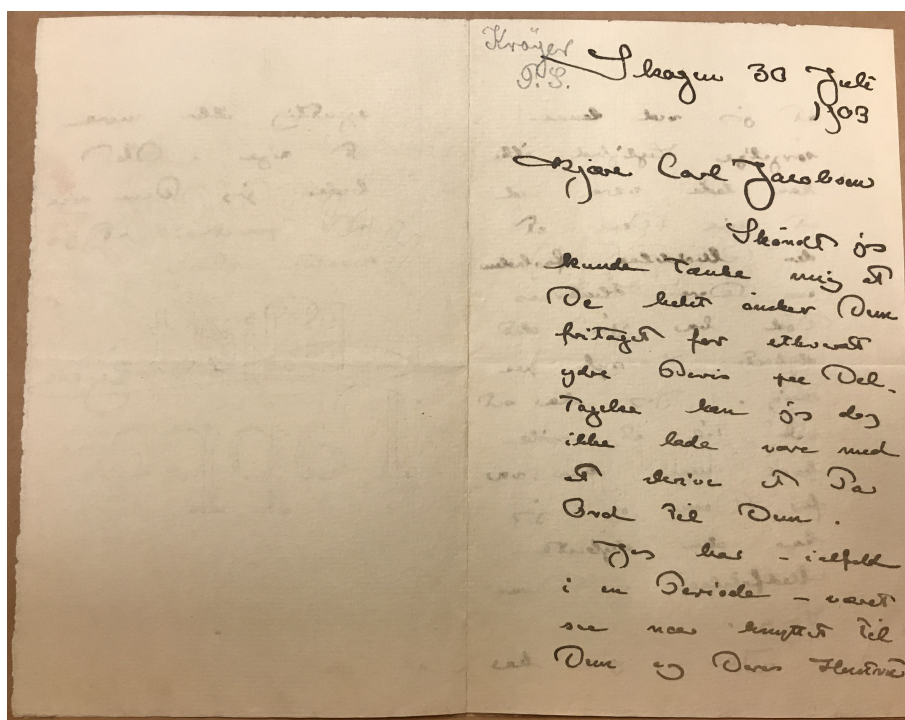 Krøyer
P.S.
Skagen 30 Juli
1903
Kjære Carl Jacobsen
Skøndt jeg
kunde tænke mig at
De helst ønsker Dem
fritaget for ethvert
ydre Bevis paa Del-
tagelse kan jeg dog
ikke lade være med
at skrive et Par
Ord til Dem.
Jeg har – ialfald
i en Periode – været
saa nær knyttet til
Dem og Deres Hustru